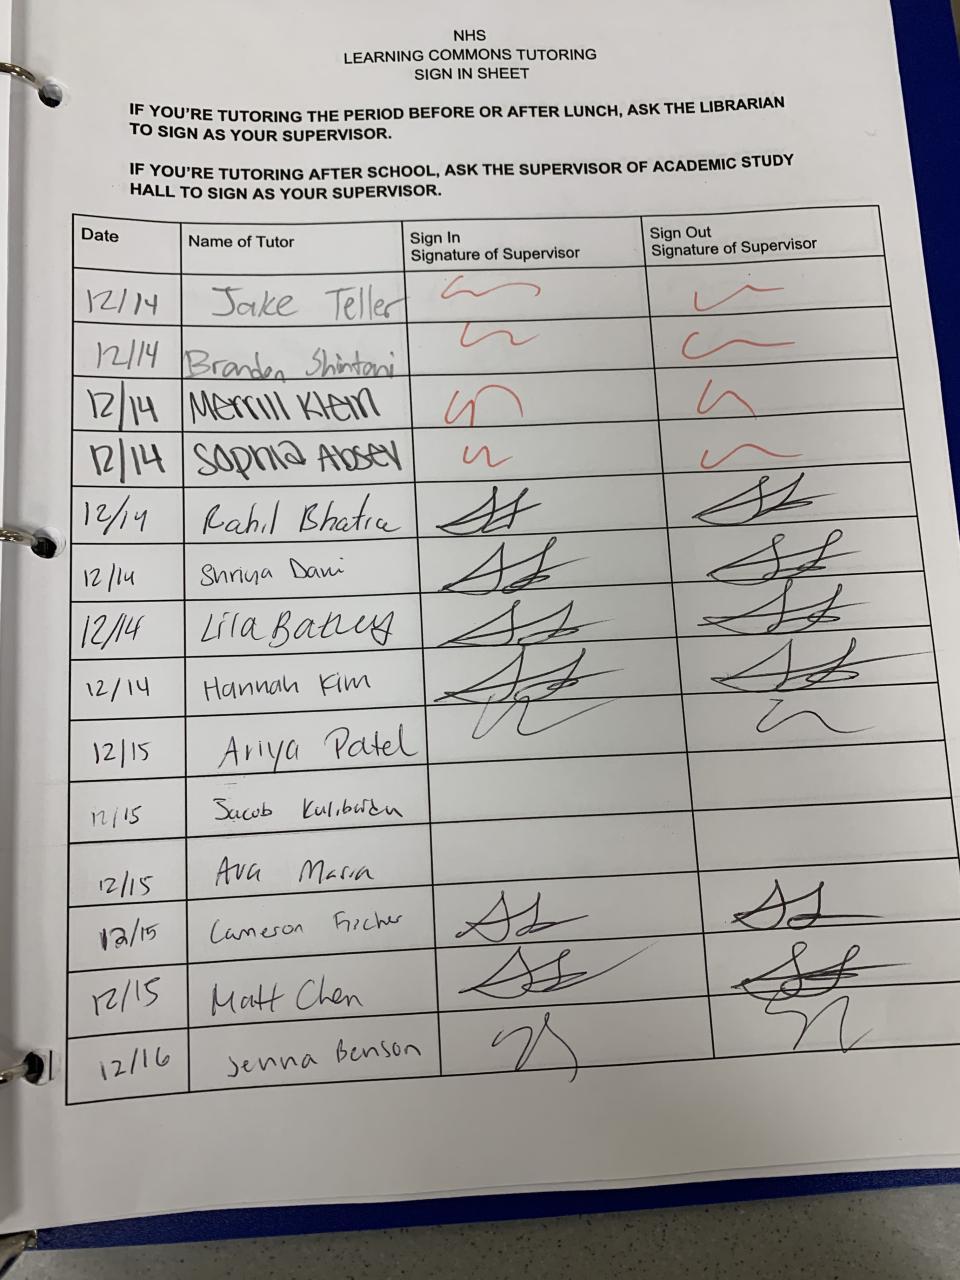 NHS
LEARNING COMMONS TUTORING
SIGN IN SHEET
IF YOU'RE TUTORING THE PERIOD BEFORE OR AFTER LUNCH, ASK THE LIBRARIAN
TO SIGN AS YOUR SUPERVISOR.
IF YOU'RE TUTORING AFTER SCHOOL, ASK THE SUPERVISOR OF ACADEMIC STUDY
HALL TO SIGN AS YOUR SUPERVISOR.
Date Name of Tutor Sign In Sign Out
Signature of Supervisor Signature of Supervisor
12/14 Jake Teller
12/14 Brandon Shintani
12/14 Merrill Klein
12/14 Sophia Absev
12/14 Rahil Bhatia
12/14 Shriya Dani
12/14 Lila
12/14 Hannah Kim
12/15 Ariya Patel
12/15 Jacob
12/15 Ava Maria
12/15 Cameron Fischer
12/15 Matt Chen
12/16 Jenna Benson